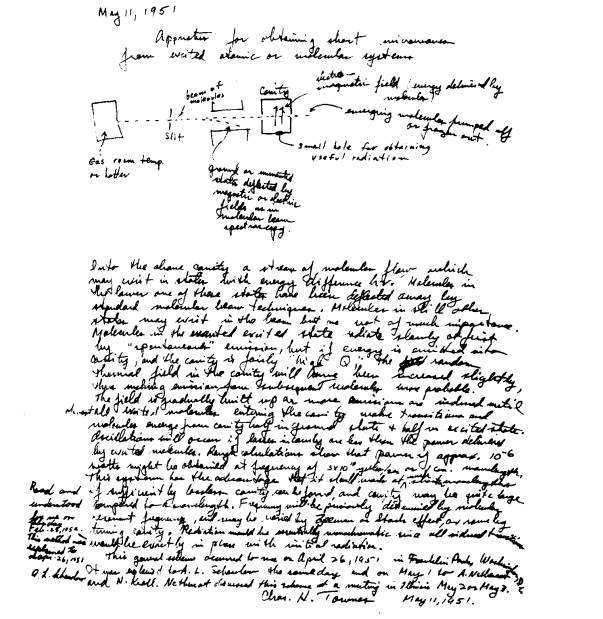 May 11, 1951
Apparatus for obtaining short microwaves
from excited atomic or molecular systems
beam of
molecules
Cavity
electro-
magnetic field (energy delivered by
molecules)
emerging molecules pumped off
or frozen out.
slit
small hole for obtaining
useful radiation
Gas room temp.
or hotter
ground or unwanted
states deflected by
magnetic or electric
fields as in
molecular beam
spectroscopy.
Into the above cavity a stream of molecules flow which
may exist in states with energy difference hν. Molecules in
the lower one of these states have been deflected away by
standard molecular beam techniques. Molecules in still other
states may exist in the beam but are not of much importance.
Molecules in the excited state radiate slowly at first
by "spontaneous" emission, but if energy is emitted into
cavity, and the cavity is fairly "high Q", the random
thermal field in the cavity will have been increased slightly,
thus making emission from subsequent molecules more probable.
The field is gradually built up as more emissions are induced until
almost all excited molecules entering the cavity make transitions and
molecules emerge from cavity half in ground state & half in excited state.
Oscillations will occur if losses in cavity are less than the power delivered
by excited molecules. Rough calculations show that power of approx. 10⁻⁶
watts might be obtained at frequency of cycles/sec or cm. wavelength.
This system has the advantage that it should work at wavelengths
if sufficiently lossless cavity can be found, and cavity may be quite large
compared to wavelength. Frequency will be determined by molecular
resonant frequency, but may be varied by Zeeman or Stark effect, or some by
tuning cavity. Radiation would be essentially monochromatic since all induced
would be exactly in phase with the initial radiation.
This general scheme occurred to me on April 26, 1951 in Franklin Park, Washington
It was explained to A. L. Schawlow the same day and on May 1 to A. Nethercot
and N. Kroll. Nethercot discussed this scheme at a meeting in Illinois May 2 or May 3.
Chas. H. Townes May 11, 1951.
Read and
understood
by me on
Feb. 1952.
This method was
explained to
me 26, 1951
A. L. Schawlow